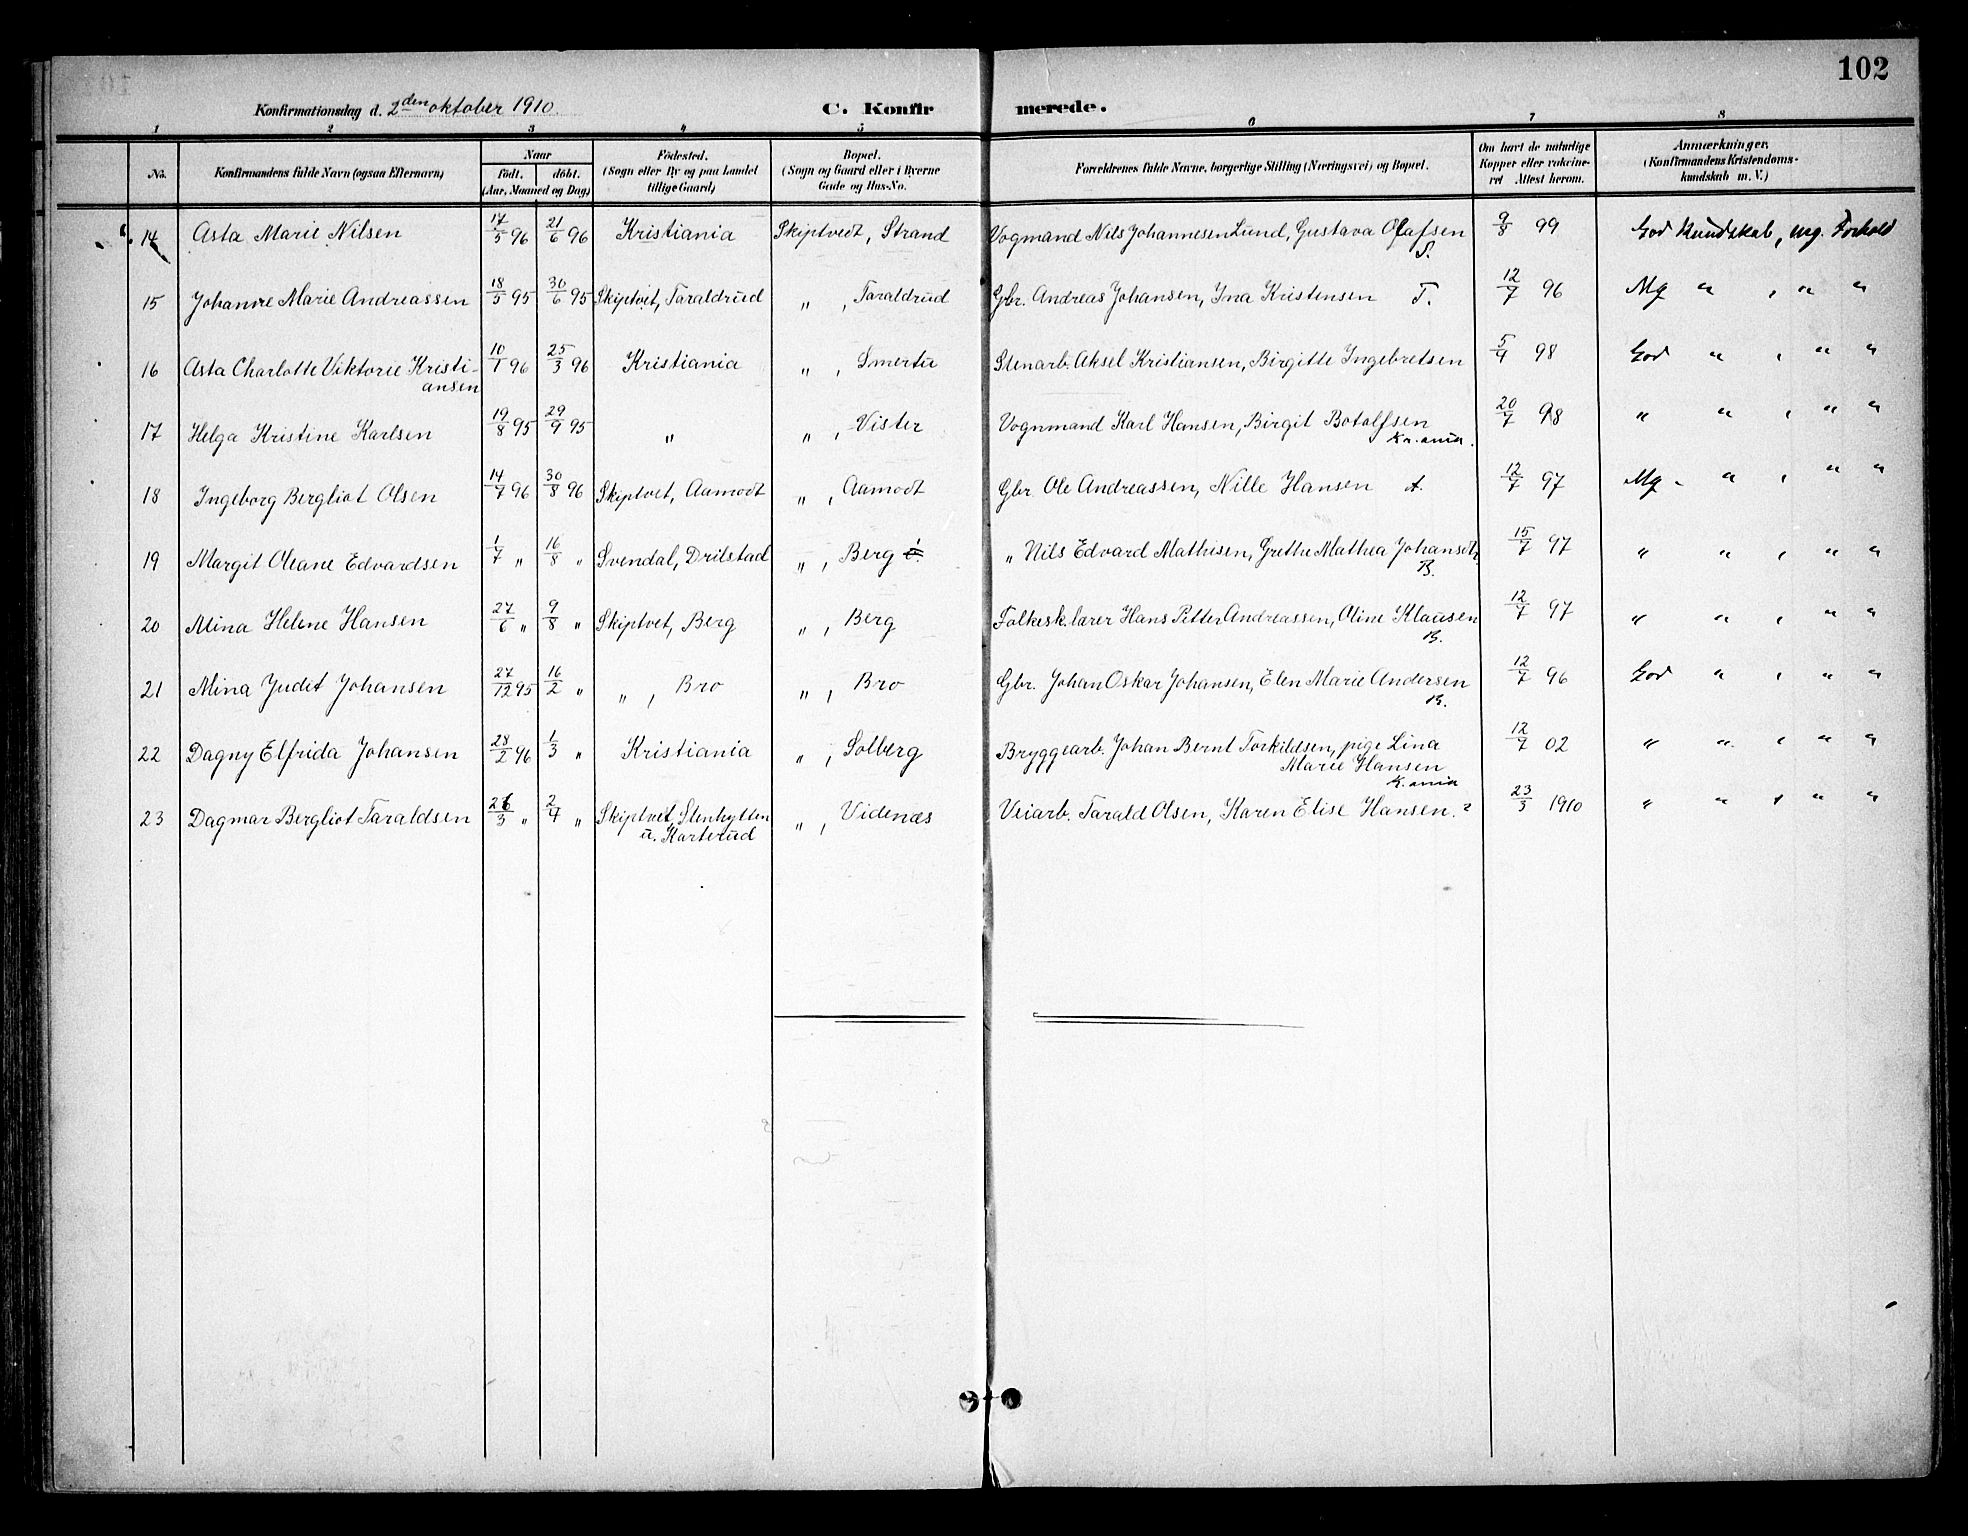 102
Konfirmationsdag d. 2den oktober 1910. C. Konfirmerede.
1 2 3 4 5 6 7 8
No. Konfirmandens fulde Navn (ogsaa Efternavn) Naar Født. døbt. (Aar, Maaned og Dag) Fødested. (Sogn eller By og paa Landet tillige Gaard) Bopæl. (Sogn og Gaard eller i Byerne Gade og Hus-No. Forældrenes fulde Navne, borgerlige Stilling (Næringsvei) og Bopæl. Om havt de naturlige Kopper eller vakcineret Attest herom. Anmærkninger. (Konfirmandens Kristendomskundskab m. V.)
14 Asta Marie Nilsen 17/5 96 21/6 96 Kristiania Skiptvedt, Strand Vogmand Nils Johannesen Lund, Gustava Olafsen S. 9/8 99 God Kundskab, mg. Forhold
15 Johanne Marie Andreassen 18/5 95 30/6 95 Skiptvet, Taraldrud „ , Taraldrud Gbr. Andreas Johansen, Ina Kristensen T. 12/7 96 Mg „ , „ „
16 Asta Charlotte Viktorie Kristi-
ansen 10/1 96 25/3 96 Kristiania „ , Smertu Stenarb. Aksel Kristiansen, Birgitte Ingebretsen 5/9 98 God „ , „ „
17 Helga Kristine Karlsen 19/8 95 29/9 95 „ „ , Vister Vognmand Karl Hansen, Birgit Botolfsen Kr.ania. 20/7 98 „ „ , „ „
18 Ingeborg Bergliot Olsen 14/7 96 30/8 96 Skiptvet, Aamodt „ , Aamodt Gbr Ole Andreassen, Nille Hansen A. 12/7 97 Mg „ , „ „
19 Margit Oleane Edvardsen 1/7 „ 16/8 „ Svendal, Drilstad „ , Berg „ Nils Edvard Mathisen, Grethe Mathea Johansdtr B. 15/7 97 „ „ , „ „
20 Mina Helene Hansen 27/6 „ 9/8 „ Skiptvet, Berg „ , Berg Folkesk.lærer Hans Petter Andreassen, Oline Klausen B. 12/7 97 „ „ , „ „
21 Mina Judit Johansen 27/12 95 16/2 „ „ , Bro „ , Bro Gbr. Johan Oskar Johansen, Elen Marie Andersen B. 12/7 96 God „ , „ „
22 Dagny Elfrida Johansen 28/2 96 1/3 „ Kristiania „ , Solberg Bryggearb. Johan Bernt Torkildsen, pige Lina
Marie Hansen K.ania 12/7 02 „ „ , „ „
23 Dagmar Bergliot Taraldsen 26/3 „ 2/4 „ Skiptvet, Stenhytten
u. Karterud „ , Videnæs Veiarb. Tarald Olsen, Karen Elise Hansen. ? 23/3 1910 „ „ , „ „